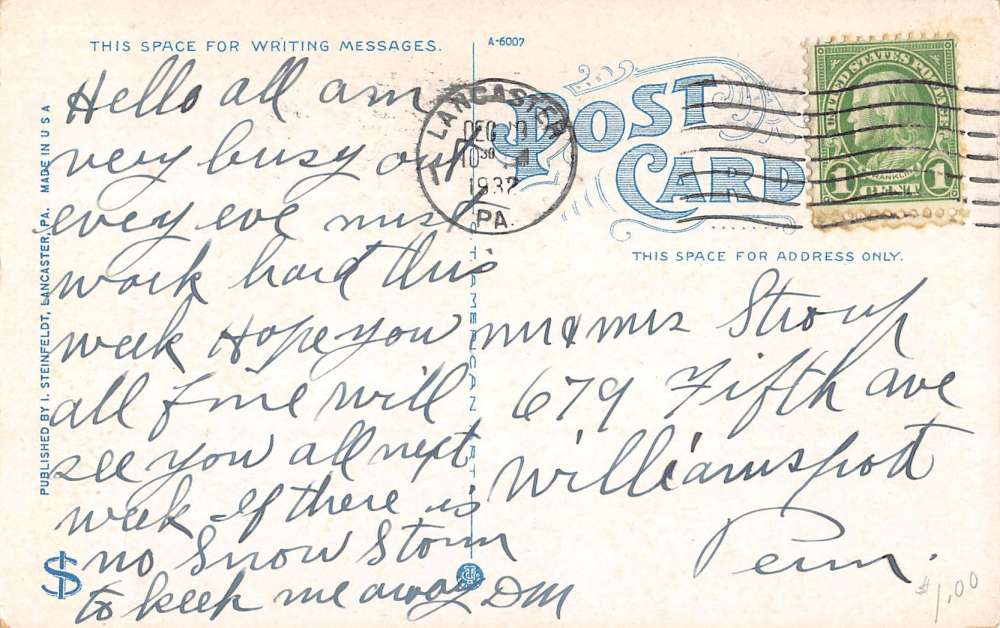 THIS SPACE FOR WRITING MESSAGES.
A-6007
Hello all am
very busy out
every eve must
work hard this
week Hope you
all fine will
see you all next
week if there is
no Snow Storm
to keek me away DM
PUBLISHED BY I. STEINFELDT, LANCASTER, PA. MADE IN U S A
LANCASTER
DEC
10 30
1932
PA.
POST
CARD
UNITED STATES POSTAGE
FRANKLIN
1 CENT 1
THIS SPACE FOR ADDRESS ONLY.
Mr & Mrs Stroup
679 Fifth ave
Williamsport
Penn.
$1.00